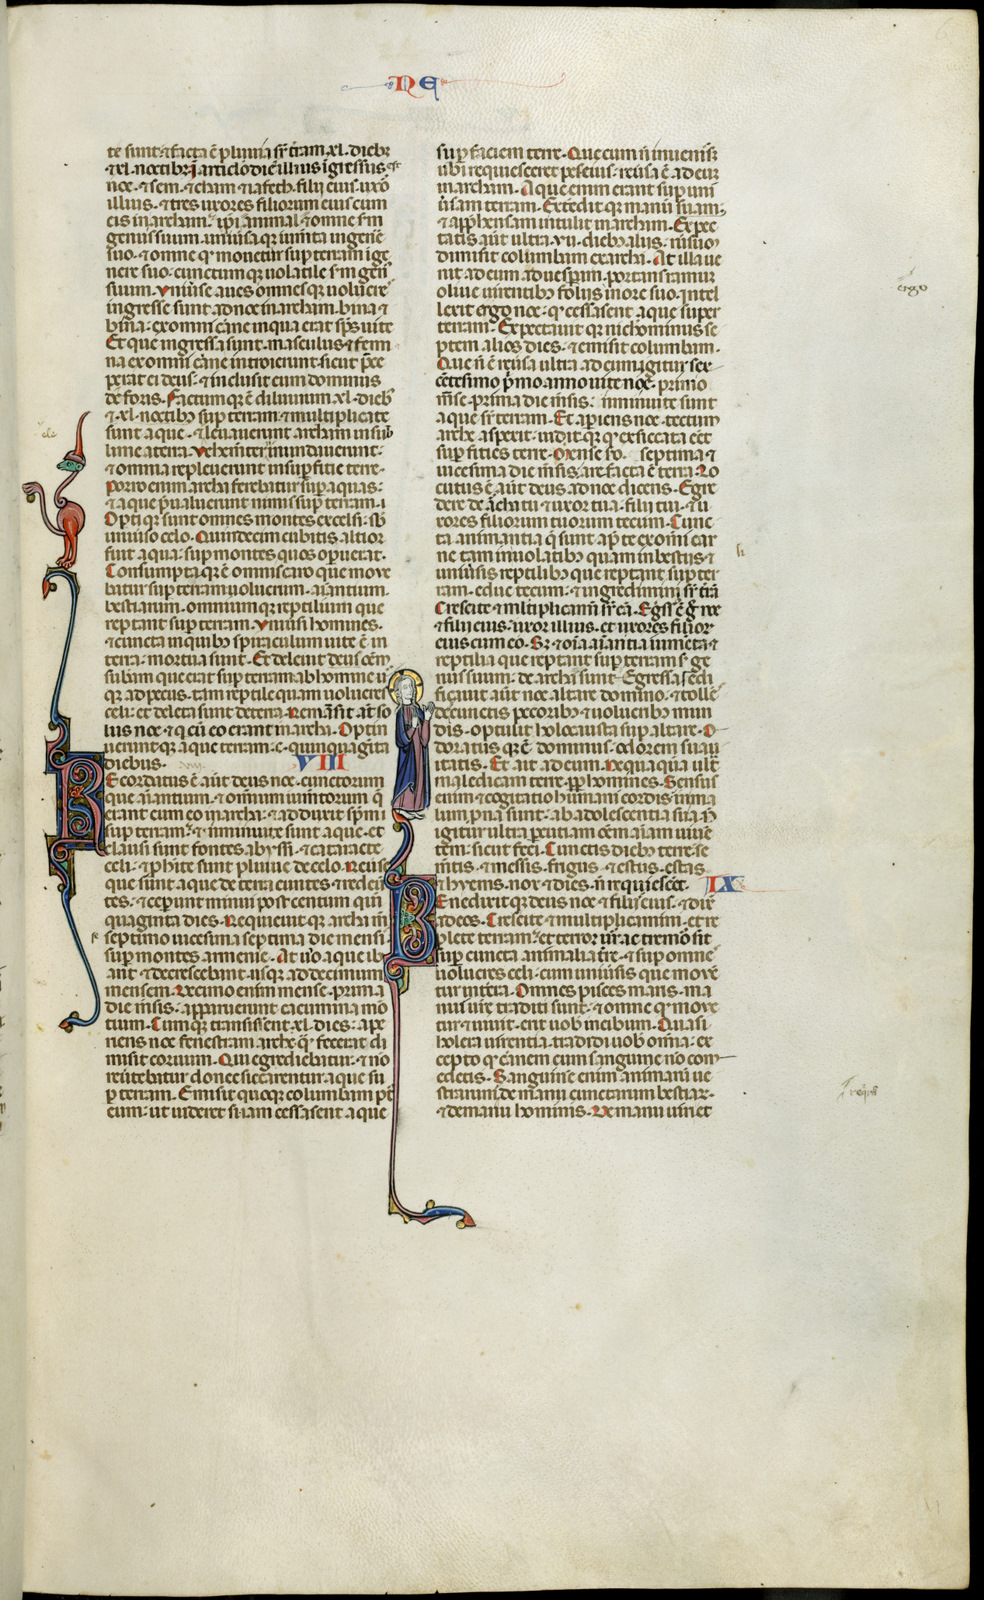 NE
te sunt ⁊ facta ē pluuia sr̄ t̄ram .xl. dieb⁊
⁊ .xl. noctib⁊ In articlo diei illius īgressus ē
noe . ⁊ sem . ⁊ cham ⁊ iafeth . filij eius uxō
illius . ⁊ tres uxores filiorum eius cum
eis in archam . ip̄i ⁊ animal ⁊ omne sm̄
genus suum . uniuisa q⁊ iumta in gene
suo . ⁊ omne qd̄ mouetur sup̄ terram ī ge
nere suo . cunctum q⁊ uolatile sm̄ gen̄
suum . Vniuise aues omnes q⁊ uolucre
ingresse sunt ad noe in archam . bina ⁊
bina . ex omni carne in qua erat sp̄s uite
Et que ingressa sunt . masculus ⁊ femi
na ex omni carne introierunt . sicut p̄ce
perat ei deus . ⁊ inclusit eum dominus
de foris . Factum q⁊ ē diluuium .xl. dieb⁊
⁊ .xl. noctib⁊ sup̄ terram ⁊ multiplicate
sunt aque . ⁊ leuauerunt archam in sub
lime a terra . Vehementer inundauerunt .
⁊ omnia repleuerunt in sup̄ficie terre .
Porro enim archa ferebatur sup̄ aquas .
⁊ aque p̄ualuerunt nimis sup̄ terram .
Opti q⁊ sunt omnes montes excelsi . sb̄
uniuiso celo . Quindecim cubitis altior
fuit aqua . sup̄ montes quos op̄uerat .
Consumpta q⁊ ē omnis caro que moue
batur sup̄ terram uolucrum . aīantium .
bestiarum . omnium q⁊ reptilium que
reptant sup̄ terram . Vniuisi homines .
⁊ cuncta in quibo spiraculum uite ē in
terra . mortua sunt . Et deleuit deus oēm
subam que erat sup̄ terram ab homine us
q⁊ ad pecus . tam reptile quam uolucres
celi . et deleta sunt de terra . Remāsit aūt so
lus noe ⁊ q̄ cū eo erant in archa . Optin
uerunt q⁊ aque terram .c. quinquaginta
diebus . VIII
Recordatus ē aūt deus noe . cunctorum
que aīantium . ⁊ omnium iumtorum q̄
erant cum eo in archa . ⁊ adduxit sp̄m
sup̄ terram . ⁊ imminute sunt aque . et
clausi sunt fontes abyssi . ⁊ cataracte
celi . ⁊ ꝓhibite sunt pluuie de celo . Reuise
que sunt aque de terra euntes ⁊ redeū
tes . ⁊ ceperunt minui post centum quī
quaginta dies . Requieuit q⁊ archa m̄
septimo uicesima septima die mensis
sup̄ montes armenie . At uo aque ib
ant ⁊ decrescebant . usq⁊ ad decimum
mensem . Decimo enim mense . prima
die msis . apparuerunt cacumina mo
tium . Cum q⁊ transissent .xl. dies . ape
riens noe fenestram arche q̄ fecerat di
misit coruum . Qui egrediebatur . ⁊ nō
reūtebatur donec siccarentur aque su
p̄ terram . Emisit quoq⁊ columbam p⁊
eum . ut uideret si iam cessassent aque
sup̄ faciem terre . Que cum n̄ inuenisset
ubi requiesceret pes eius . reūsa ē ad eum
in archam . Aque enim erant sup̄ uni
ūsam terram . Extēdit q⁊ manū suam .
⁊ apphensam intulit in archam . Expec
tatis aūt ultra .vii. dieb⁊ alijs . rursum
dimisit columbam ex archa . At illa ue
nit ad eum ad uesp̄am . portans ramum
oliue uirentib⁊ folijs in ore suo . Intel
lexit ergo noe . q̄ cessassent aque super
terram . Expectauit q⁊ nichominus se
ptem alios dies . ⁊ emisit columbam .
Que n̄ ē reūsa ultra ad eum . igitur sex
cētesimo p̄mo anno uite noe . primo
m̄se . prima die m̄sis . imminute sunt
aque sr̄ terram . Et ap̄iens noe . tectum
arche aspexit . uidit q⁊ q̄ exsiccata ēēt
sup̄ficies terre . Mense sō septima ⁊
uicesima die m̄sis are facta ē terra . Lo
cutus ē aūt deus ad noe dicens . Egre
dere de archa tu ⁊ uxor tua . filij tui . ⁊ u
xores filiorum tuorum tecum . Cunc
ta animantia q̄ sunt ap̄ te ex omi car
ne tam in uolatilib⁊ quam in bestijs ⁊
uniūsis reptilib⁊ que reptant sup̄ ter
ram . educ tecum . ⁊ ingredimini sr̄ t̄rā
Crescite ⁊ multiplicamī sr̄ eā . Egss̄ ē g̊ noe
⁊ filij eius . uxor illius . et uxores filior⁊
eius cum eo . Sz ⁊ oīa aīantia iumēta ⁊
reptilia que reptant sup̄ terram s̄ ge
nus suum . de archa sunt Egressa . edi
ficauit aūt noe altare domino . ⁊ tolle
de cunctis pecorib⁊ ⁊ uolucrib⁊ mun
dis . optulit holocausta sup̄ altare . O
doratus q⁊ ē dominus . odorem suaui
tatis . Et ait ad eum . Nequaquā ult̄
maledicam terre . ꝓp̄ homines . Sensus
enim ⁊ cogitatio humani cordis in ma
lum prona sunt . ab adolescentia sua . N̄
igitur ultra p̄cutiam oēm aīam uiuē
tem . sicut feci . Cunctis dieb⁊ terre se
m̄tis . ⁊ messis . frigus . ⁊ estus . estas
⁊ hyems . nox ⁊ dies . n̄ requiescēt . IX
Benedixit q⁊ deus noe ⁊ filijs eius . ⁊ dix̄
ad eos . Crescite ⁊ multiplicamini . et re
plete terram . et terror ur̄ ac tremor sit
sup̄ cuncta animalia t̄re . ⁊ sup̄ omne
uolucres celi . cum uniūsis que mouē
tur in terra . Omnes pisces maris . ma
nui ur̄e traditi sunt . ⁊ omne q̄ moue
tur ⁊ uiuit . erit uob̄ in cibum . Quasi
holera uirentia . tradidi uob̄ om̄ia . ex
cepto q̄ carnem cum sanguine nō com
edetis . Sanguinē enim animarū ue
strarum de manu cunctarum bestiar⁊ .
⁊ de manu hominis . De manu uiri et
ergo